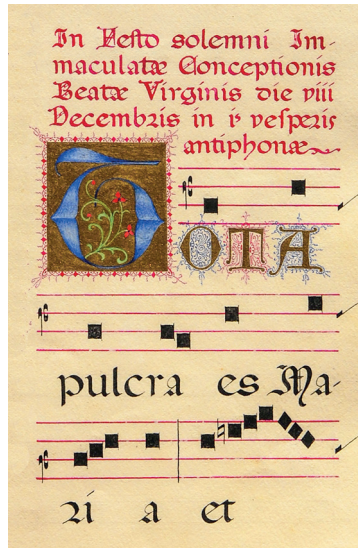 In Festo solemni Im-
maculatæ Conceptionis
Beatæ Virginis die viii
Decembris in i⁵ vesperis
antiphonæ
TOTA
pulcra es Ma-
ri a et